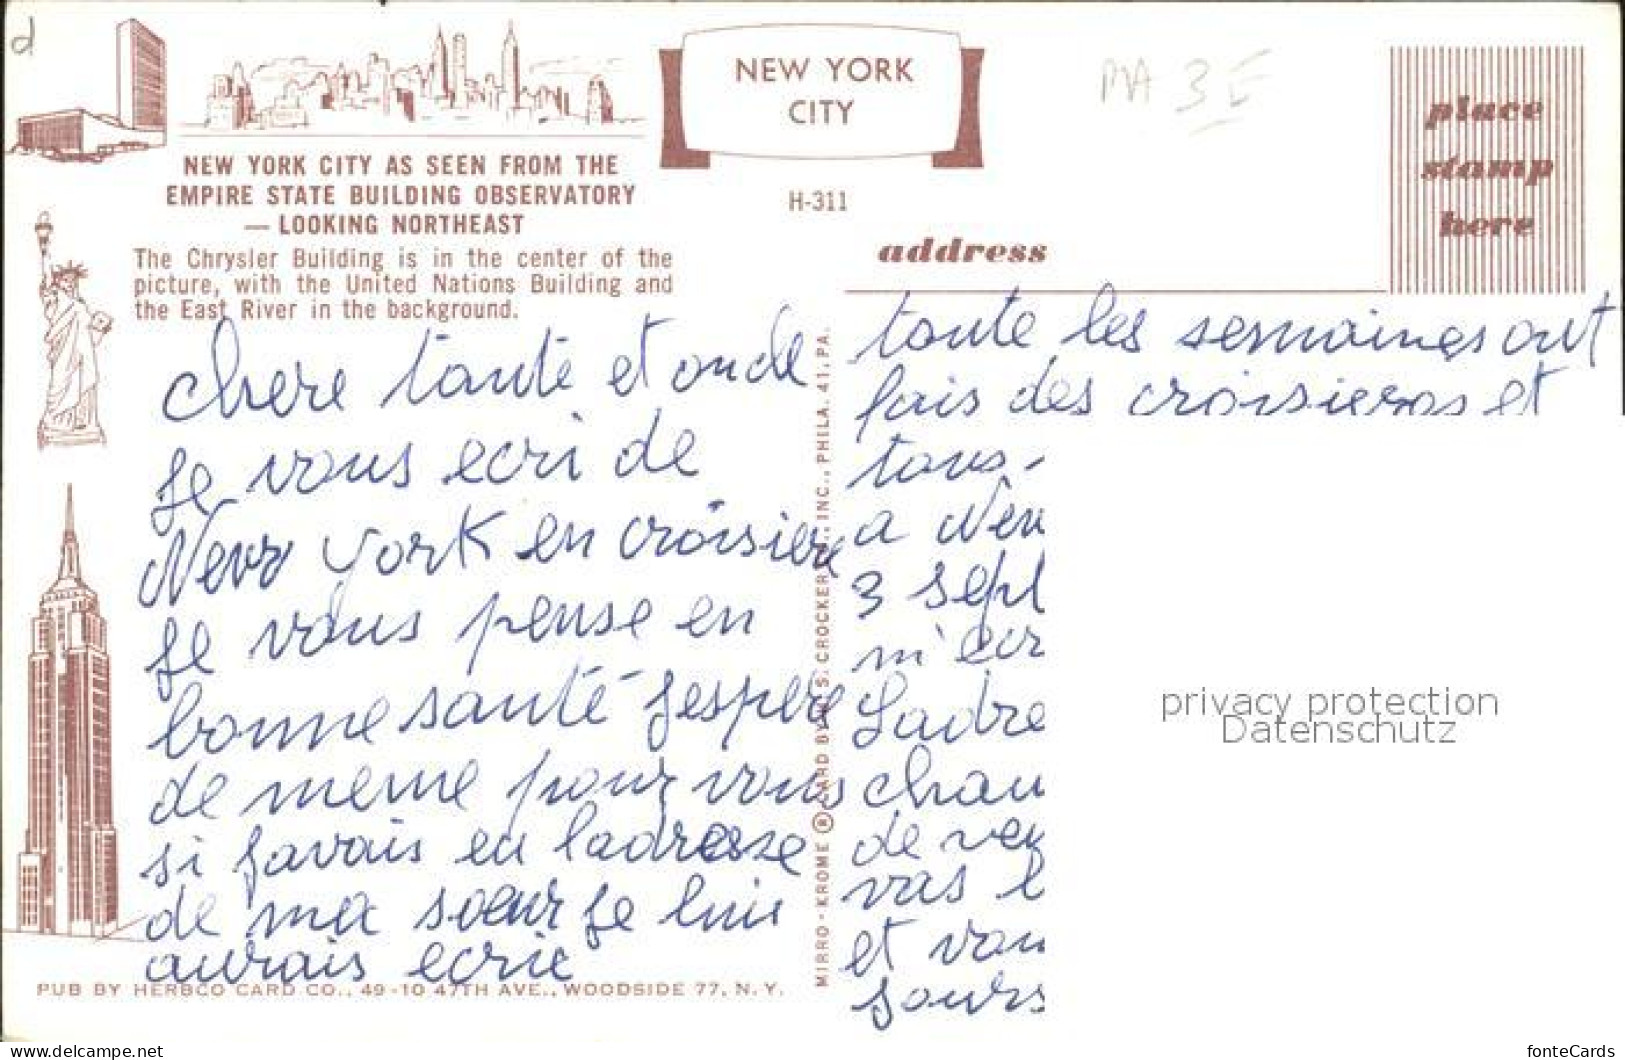 d
NEW YORK CITY AS SEEN FROM THE
EMPIRE STATE BUILDING OBSERVATORY
— LOOKING NORTHEAST
The Chrysler Building is in the center of the
picture, with the United Nations Building and
the East River in the background.
NEW YORK
CITY
H-311
PIA 3 E
place
stamp
here
address
chere tante et oncle
je vous ecri de
New York en croisiere
je vous pense en
bonne santé jespere
de meme pour vous
si javais eu ladresse
de ma sœur je lui
aurais ecrie
toute les semaines ont
fais des croisieros et
tous
a New
3 sept
m'ecr
Ladre
chan
de ven
vas l
et vou
jours
MIRRO-KROME ® CARD BY H. S. CROCKER CO., INC., PHILA. 41, PA.
PUB BY HERBCO CARD CO., 49-10 47TH AVE., WOODSIDE 77, N.Y.
privacy protection
Datenschutz
www.delcampe.net
fonteCards